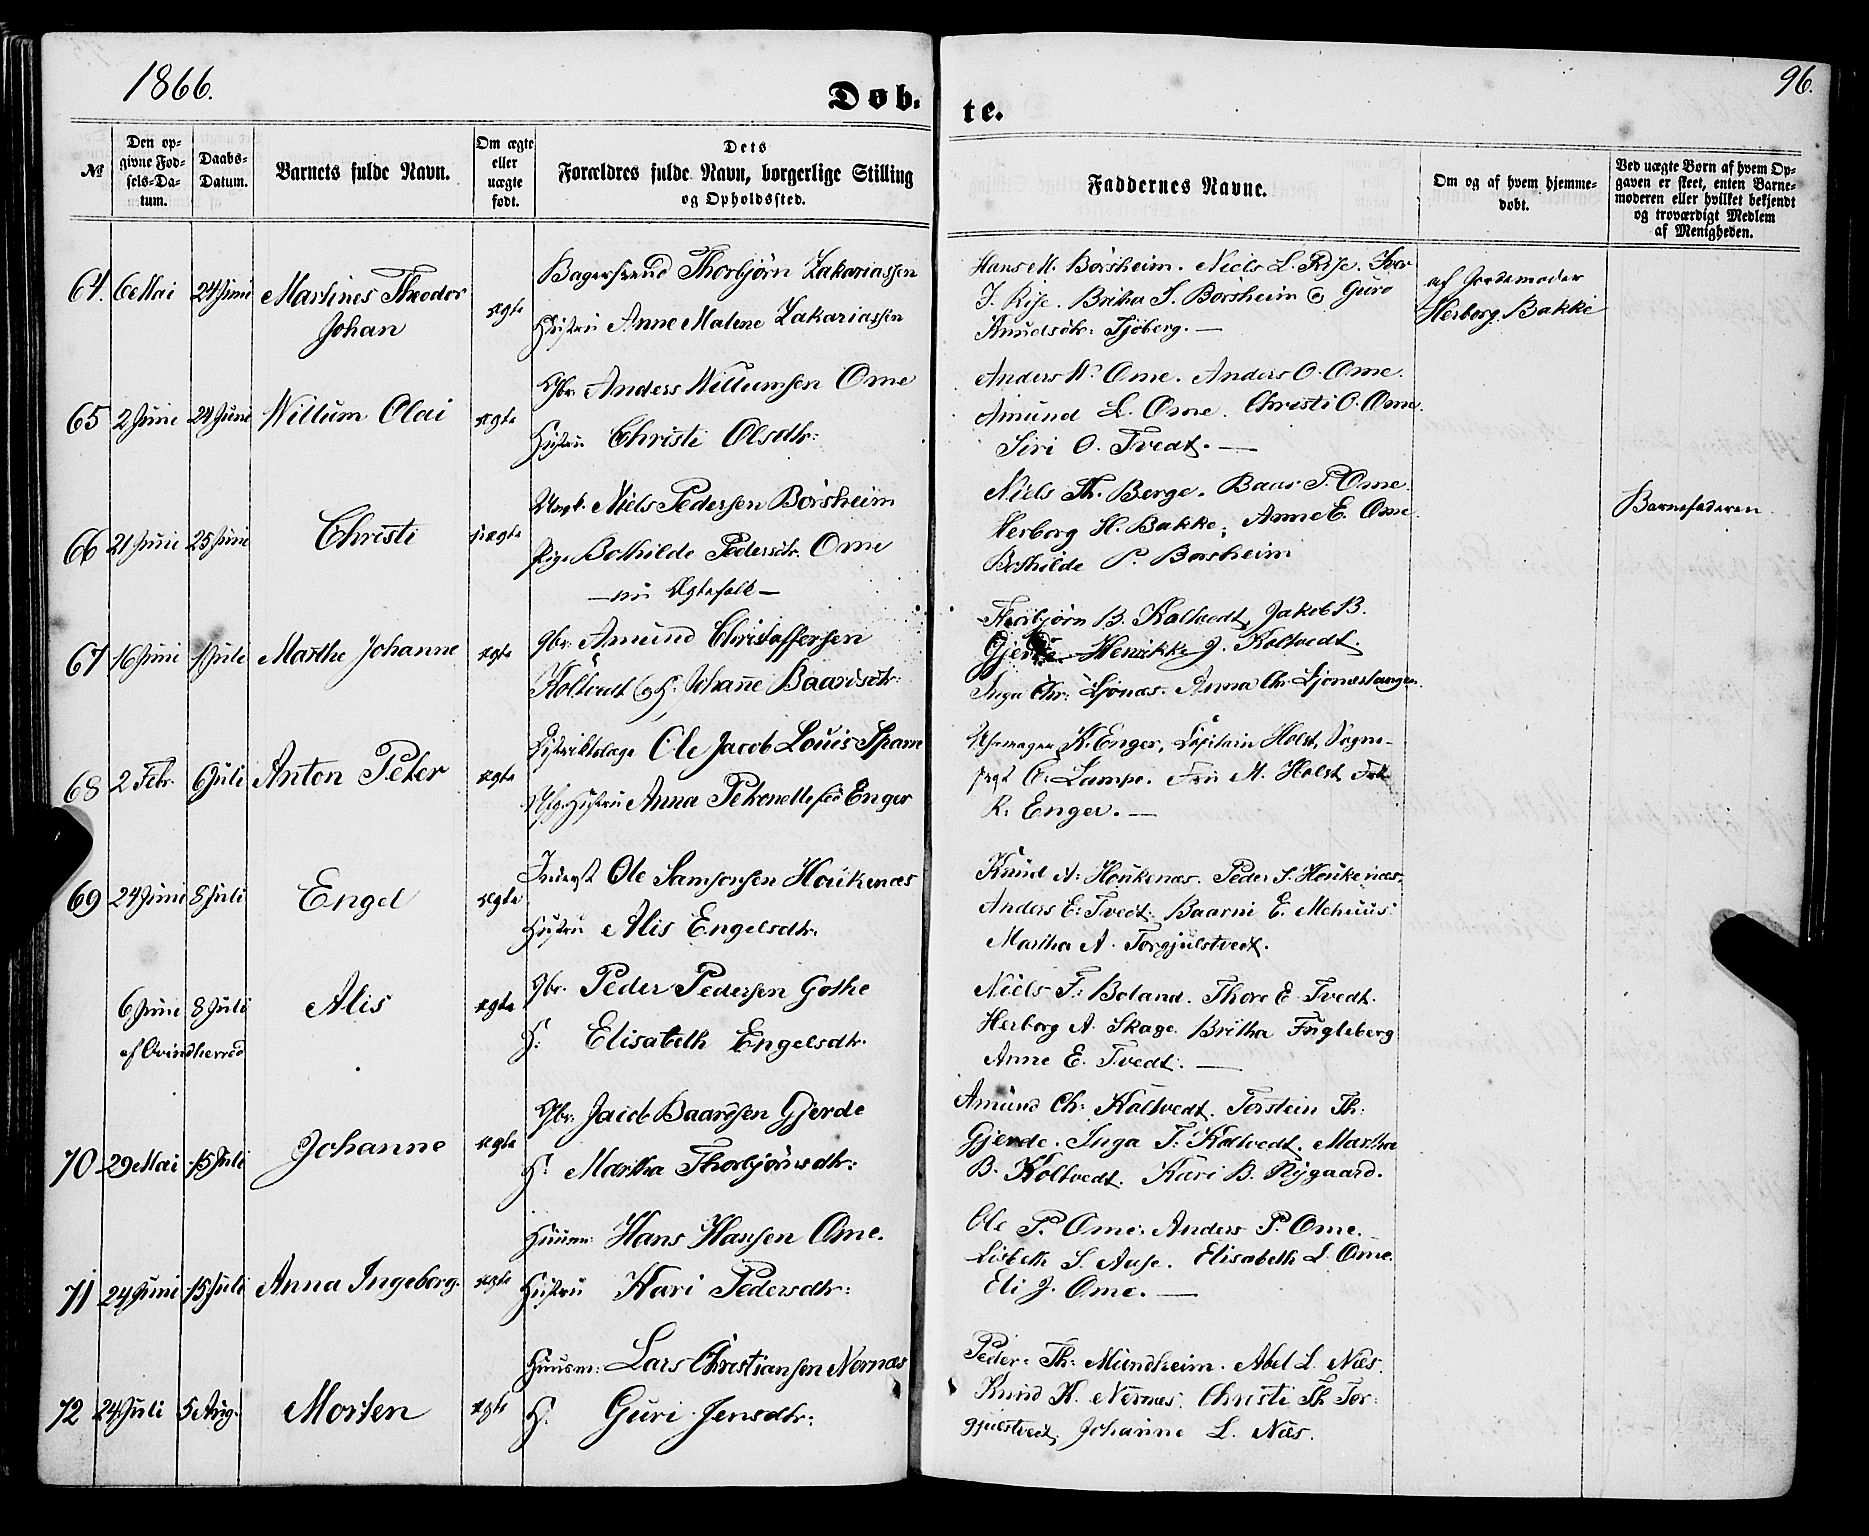 1866.
Døb-
te.
96.
№
Den op-
givne Fød-
sels-Da-
tum.
Daabs-
Datum.
Barnets fulde Navn.
Om ægte
eller
uægte
født.
Dets
Forældres fulde Navn, borgerlige Stilling
og Opholdssted.
Faddernes Navne.
Om og af hvem hjemme-
døbt.
Ved uægte Børn af hvem Op-
gaven er skeet, enten Barne-
moderen eller hvilket bekjendt
og troværdigt Medlem
af Menigheden.
64. 6 Mai 24 Juni Martines Theodor
Johan
ægte
Bagersvend Thorbjörn Zakariassen
Hustru Anne Malene Zakariassen
Hans M. Börsheim. Niels L. Rise. Iver
J. Rise. Britha S. Börsheim og Guro
Knudsdtr: Sjöberg. —
af Jordemoder
Herborg Bakke
65 2 Juni 24 Juni Willum Olai ægte
Gbr. Anders Willumsen Ome
Hustru Christi Olsdtr:
Anders W. Ome. Anders O. Ome.
Amund L. Ome. Christi O. Ome.
Siri O. Tvedt. —
66 21 Juni 25 Juni Christi uægte
Ungk. Niels Pedersen Börsheim
Pige Bothilde Pedersdtr. Ome
— nu Ægtefolk —
Niels Th. Berge. Baar P. Ome.
Herborg H. Bakke, Anne E. Ome
Bothilde P. Borsheim
Barnefaderen.
67 16 Juni 1 Juli Marthe Johanne ægte
Gbr. Amund Christoffersen
Koltvedt og H. Johanne Baardsdtr:
Thorbjörn B. Koltvedt, Jakob B.
Gjerde. Henrikke J. Koltvedt.
Inga Chr: Ljönæs. Anna Chr. Ljonæstangen.
68 2 Febr. 6 Juli Anton Peter ægte
Distriktslæge Ole Jacob Louis Sparre
Hustru Anna Petronelle fød Enger
Uhrmager K. Enger, Capitain Holst, Sogne-
prest C. Lampe. Fru M. Holst Frk
R. Enger. —
69 24 Juni 8 Juli Engel ægte
Inderst Ole Samsonsen Haukenæs
Hustru Alis Engelsdtr.
Knud A: Haukenæs. Peder S. Haukenæs.
Anders E: Tvedt. Baarni E. Mehuus.
Maritha A. Torgjulstvedt.
6 Juni 8 Juli Alis ægte
af Qvindherred
Gbr. Peder Pedersen Gothe
H: Elisabeth Engelsdtr.
Niels T: Boland. Thore E. Tvedt.
Herborg A. Skage. Britha Fugleberg
Anne E. Tvedt. —
70 29 Mai 15 Juli Johanne ægte
Gbr. Jacob Baardsen Gjerde
H. Maritha Thorbjörnsdtr:
Amund Ch: Koltvedt. Torstein Th:
Gjerde. Inga T: Koltvedt. Martha
B. Koltvedt. Kari B. Nygaard.
71 24 Juni 15 Juli Anna Ingeborg. ægte
Huusm: Hans Hansen Ome.
Hustru Kari Pedersdtr:
Ole P. Ome. Anders P. Ome.
Lisbeth S. Aase. Elisabeth L. Ome.
Eli J. Ome. —
72 24 Juli 5 Aug. Morten ægte
Huusm: Lars Christiansen Nernæs
H. Guri Jensdtr:
Peder Th: Mundheim. Abel L. Næs.
Knud K. Nernæs. Christi Th. Tor-
gjulstvedt, Johanne L. Næs.